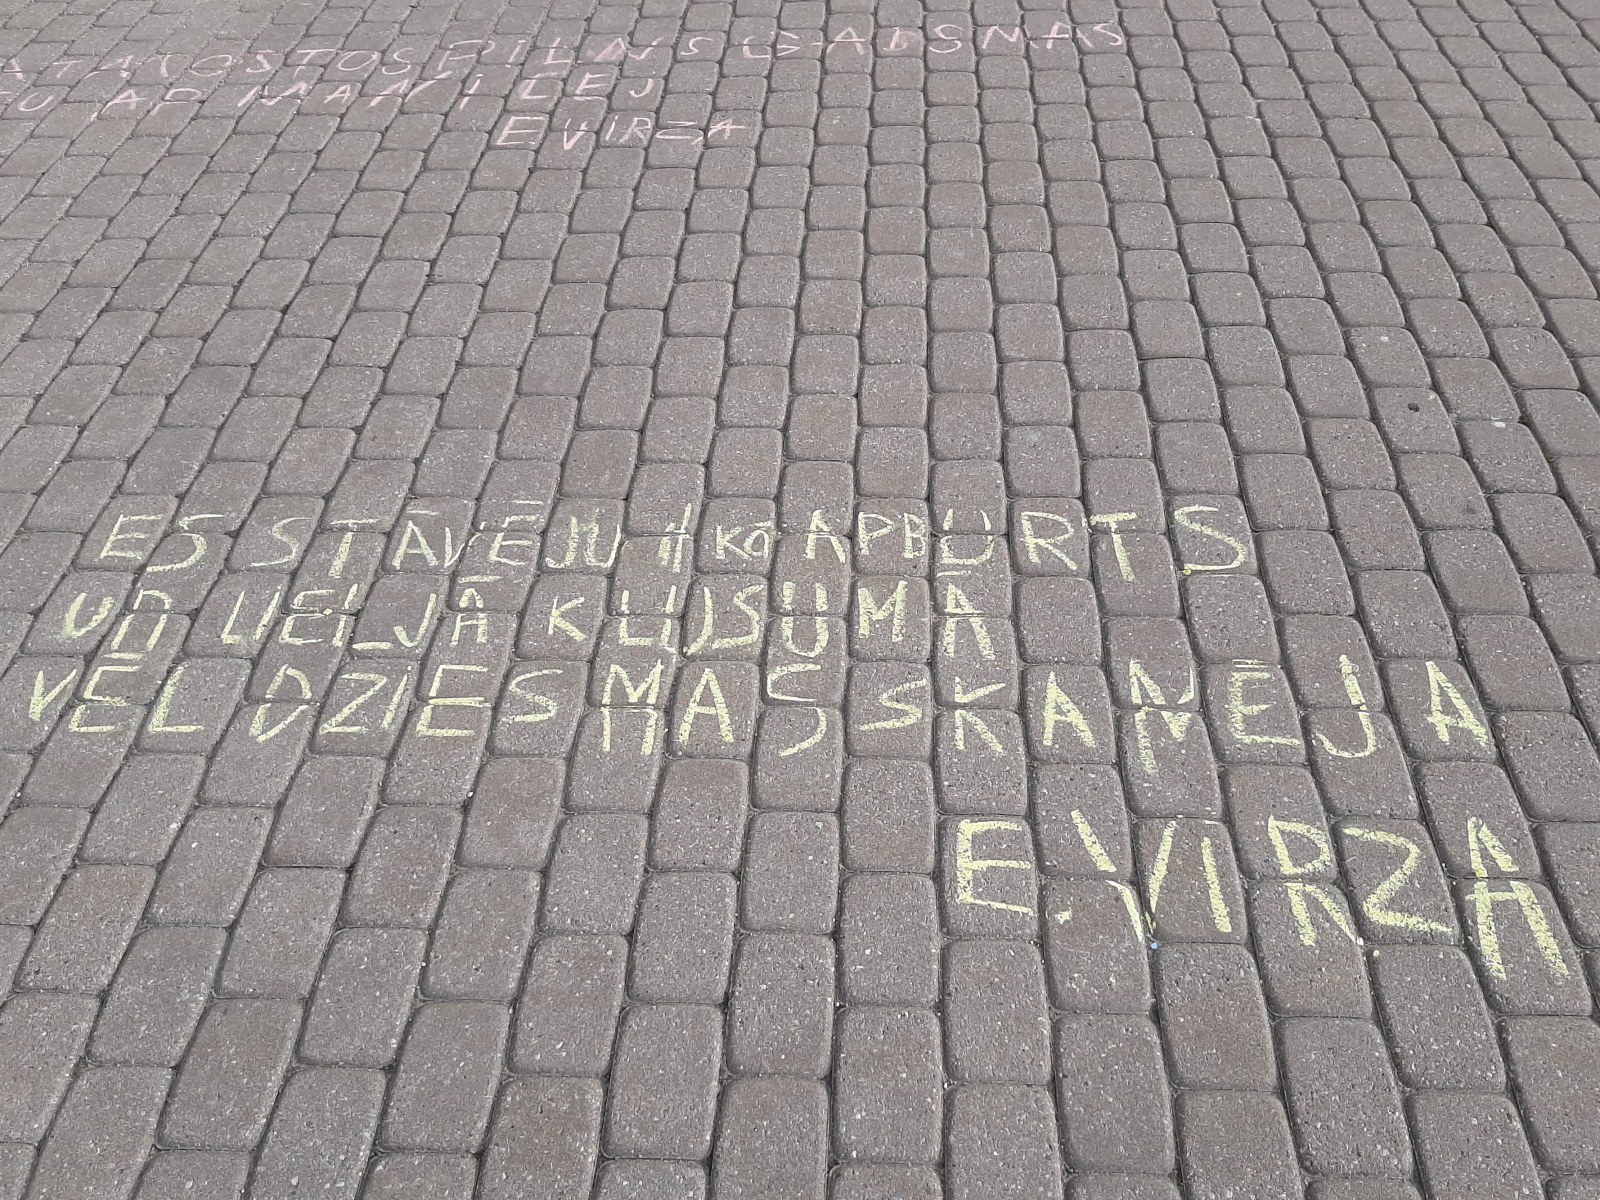 PILNS
AP MANI LEJ
E VIRZA
ES STĀVĒJU Kā APBURTS
UN LIELJĀ KLUSUMĀ
VĒL DZIESMAS SKANĒJA
E.VIRZA